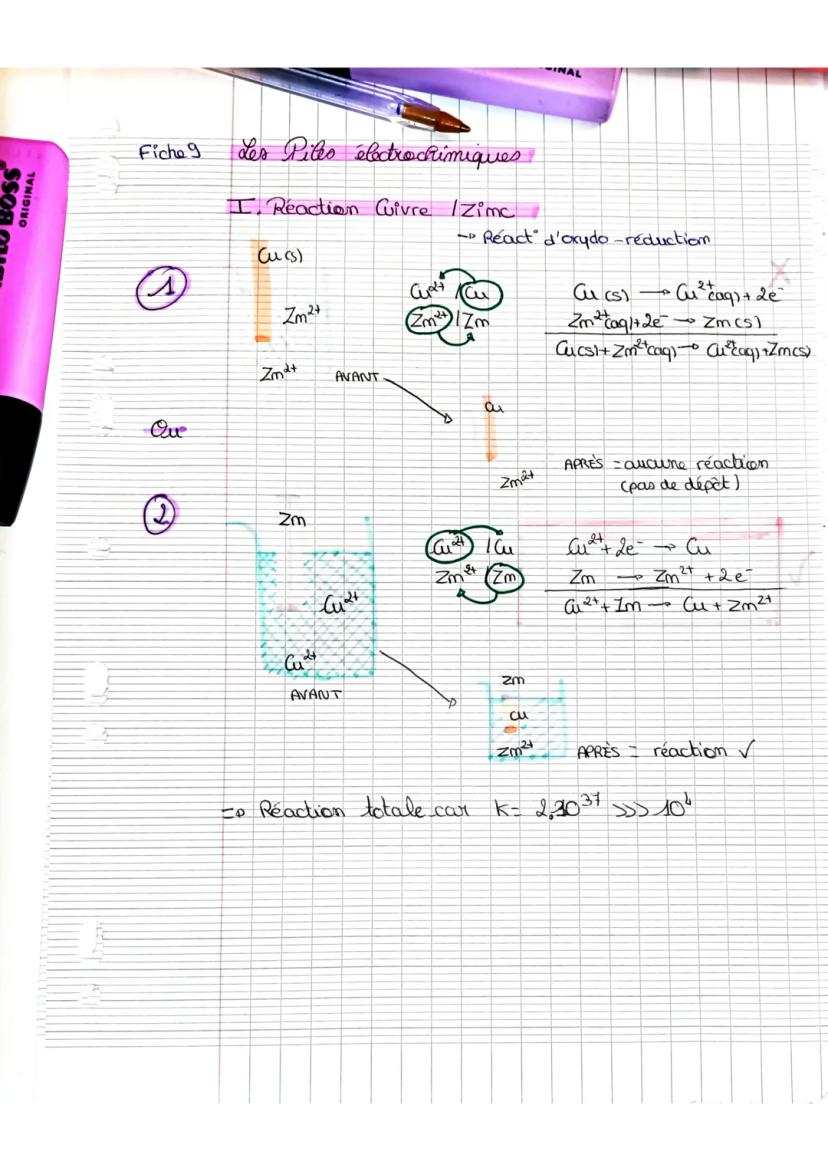 INAL
BOSS
ORIGINAL
Fiche 9 Les Piles électrochimiques
I. Réaction Cuivre / Zinc
→ Réact° d'oxydo-réduction
Cu(s)
1
Zn²⁺
Zn²⁺
AVANT
Cu²⁺ / Cu
Zn²⁺ / Zn
Cu(s) → Cu²⁺(aq) + 2e⁻
Zn²⁺(aq) + 2e⁻ → Zn(s)
Cu(s) + Zn²⁺(aq) → Cu²⁺(aq) + Zn(s)
Cu
Zn²⁺
APRÈS = aucune réaction
(pas de dépôt)
Ou
2
Zn
Cu²⁺
Cu²⁺
AVANT
Cu²⁺ / Cu
Zn²⁺ / Zn
Cu²⁺ + 2e⁻ → Cu
Zn → Zn²⁺ + 2e⁻
Cu²⁺ + Zn → Cu + Zn²⁺
Zn
Cu
Zn²⁺
APRÈS = réaction ✓
⇒ Réaction totale car K = 2.10³⁷ >>> 10⁴